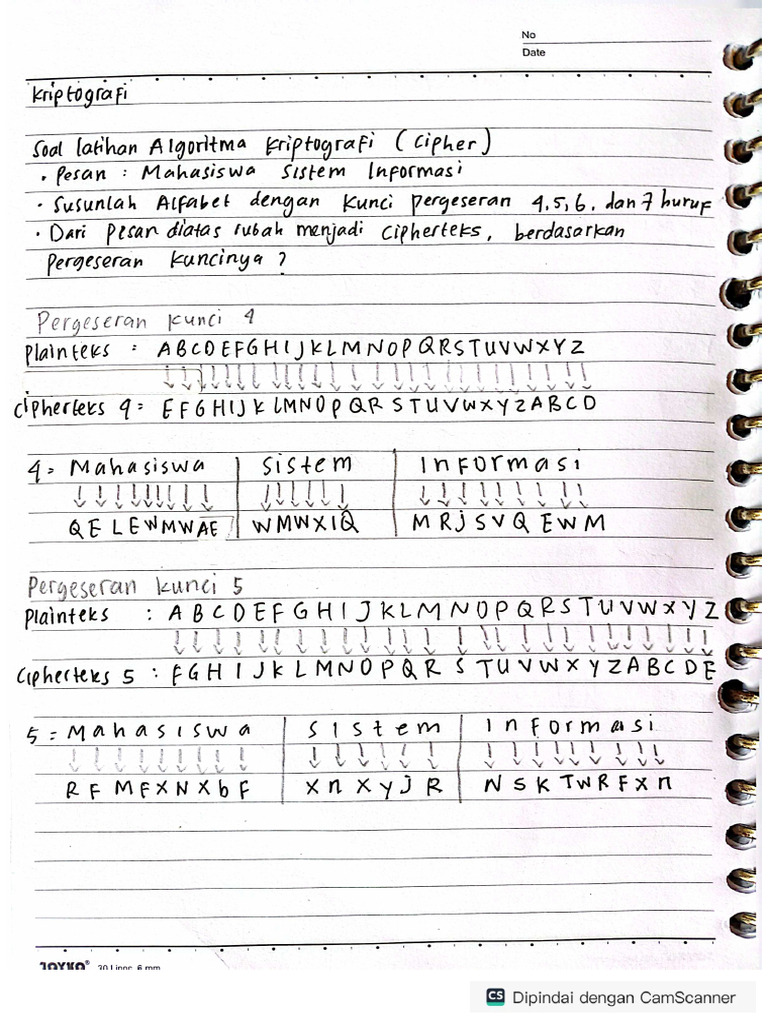 No
Date
Kriptografi
Soal latihan Algoritma Kriptografi (Cipher)
• Pesan : Mahasiswa Sistem Informasi
• Susunlah Alfabet dengan Kunci pergeseran 4,5,6, dan 7 huruf
• Dari Pesan diatas rubah menjadi Cipherteks, berdasarkan
Pergeseran Kuncinya ?
Pergeseran Kunci 4
Plainteks : A B C D E F G H I J K L M N O P Q R S T U V W X Y Z
Cipherteks 4 = E F G H I J K L M N O P Q R S T U V W X Y Z A B C D
4 = Mahasiswa | Sistem | Informasi
Q E L E W M W A E | W M W X I Q | M R J S V Q E W M
Pergeseran Kunci 5
Plainteks : A B C D E F G H I J K L M N O P Q R S T U V W X Y Z
Cipherteks 5 : F G H I J K L M N O P Q R S T U V W X Y Z A B C D E
5 = Mahasiswa | Sistem | Informasi
R F M F X N X b F | X n X y J R | N S K T W R F X n
JOYKO® 30 Lines, 6 mm
CS Dipindai dengan CamScanner